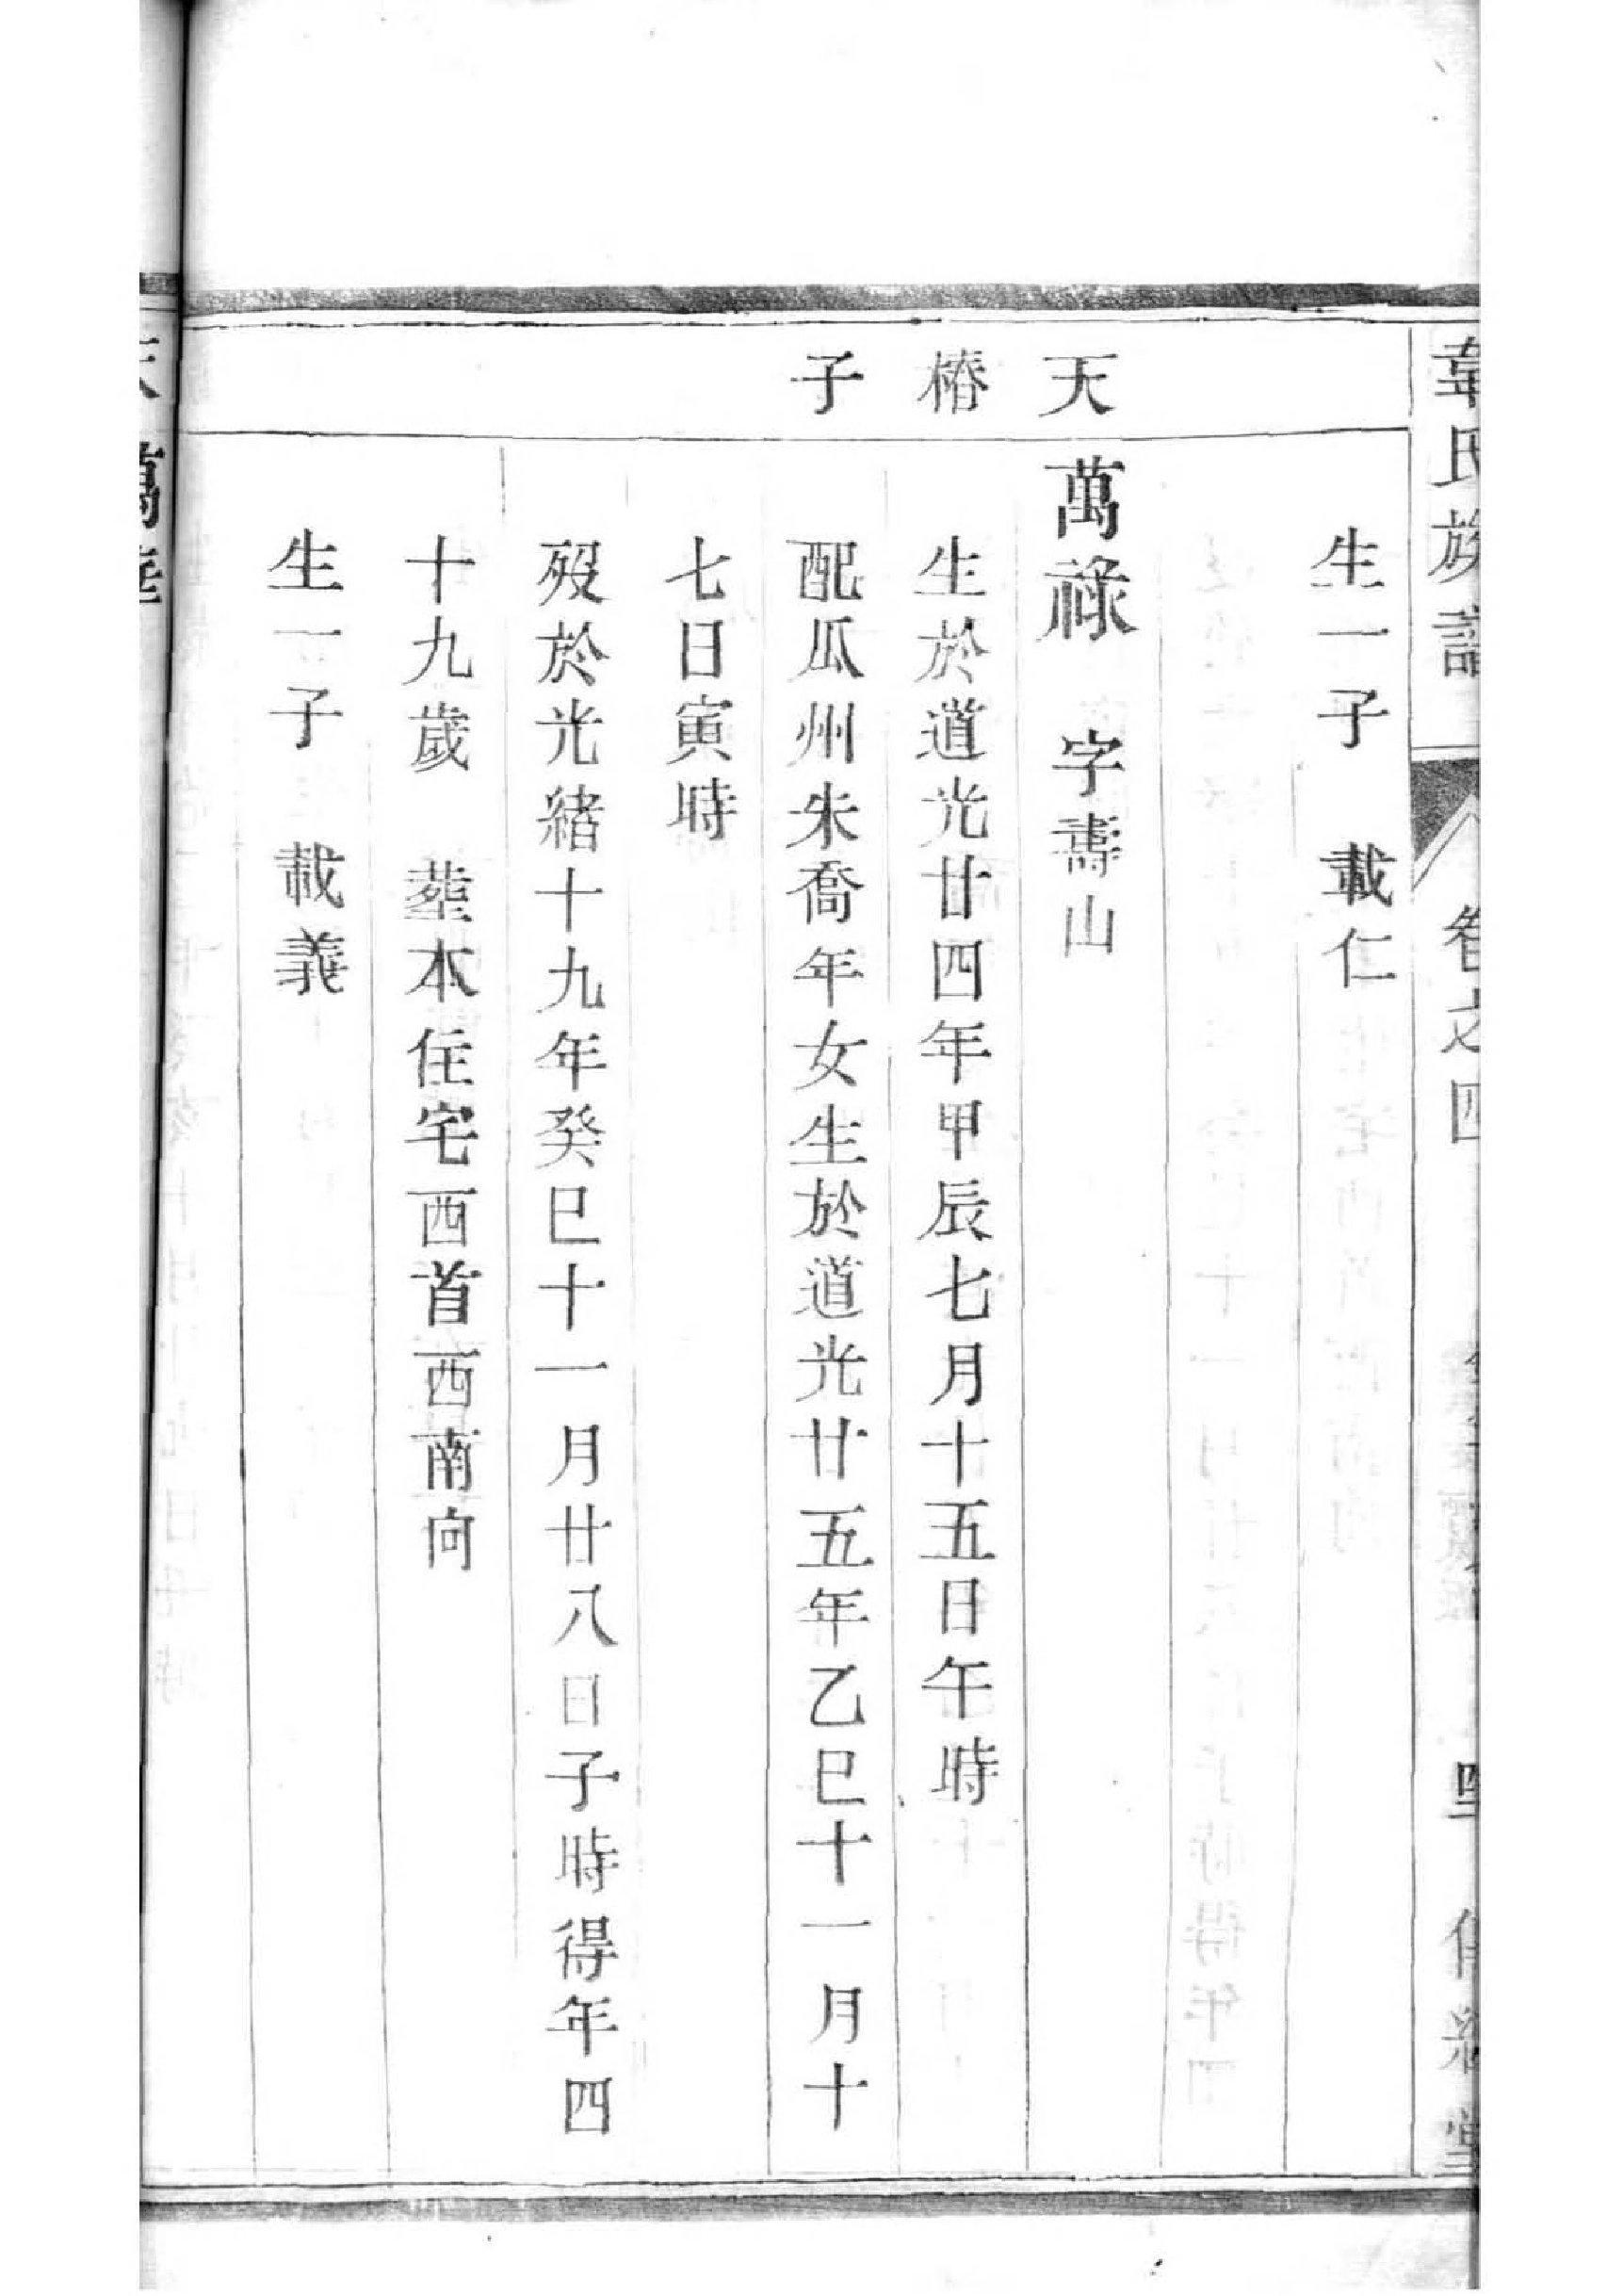 韋氏族譜 卷之四
生一子 載仁
天椿子
萬祿 字壽山
生於道光廿四年甲辰七月十五日午時
配瓜州朱喬年女生於道光廿五年乙巳十一月十
七日寅時
歿於光緒十九年癸巳十一月廿八日子時得年四
十九歲 塟本住宅西首西南向
生一子 載義